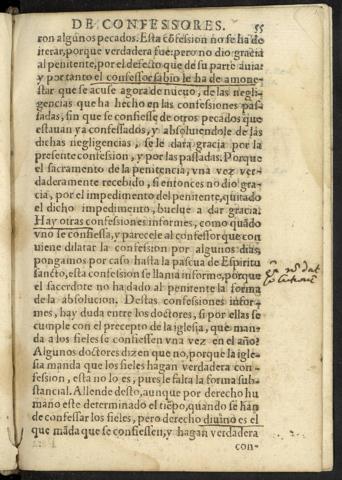 DE CONFESSORES. 55
ron algunos pecados. Esta cõfession no se ha de
iterar, porque verdadera fue: pero no dio gracia
al penitente, por el defecto que de su parte auia:
y por tanto el confessor sabio le ha de amone-
star que se acuse agora de nueuo, de las negli-
gencias que ha hecho en las confessiones pas-
sadas, sin que se confiesse de otros pecados que
estauan ya confessados, y absoluiendole de las
dichas negligencias, se le dara gracia por la
presente confession, y por las passadas. Porque
el sacramento de la penitencia, vna vez ver-
daderamente recebido, si entonces no dio gra-
cia, por el impedimento del penitente, quitado
el dicho impedimento, buelue a dar gracia.
Hay otras confessiones informes, como quãdo
vno se confiessa, y parecele al confessor que con
uiene dilatar la confession por algunos dias,
pongamos por caso hasta la pascua de Espiritu
sancto, esta confession se llama informe, porque
el sacerdote no ha dado al penitente la forma
de la absolucion. Destas confessiones infor-
mes, hay duda entre los doctores, si por ellas se
cumple con el precepto de la iglesia, que man-
da a los fieles se confiessen vna vez en el año?
Algunos doctores dizen que no, porque la igle-
sia manda que los fieles hagan verdadera con-
fession, esta no lo es, pues le falta la forma sub-
stancial. Allende desto, aunque por derecho hu
mano este determinado el tiẽpo, quando se han
de confessar los fieles, pero derecho diuino es el
que mãda que se confiessen, y hagan verdadera
con-